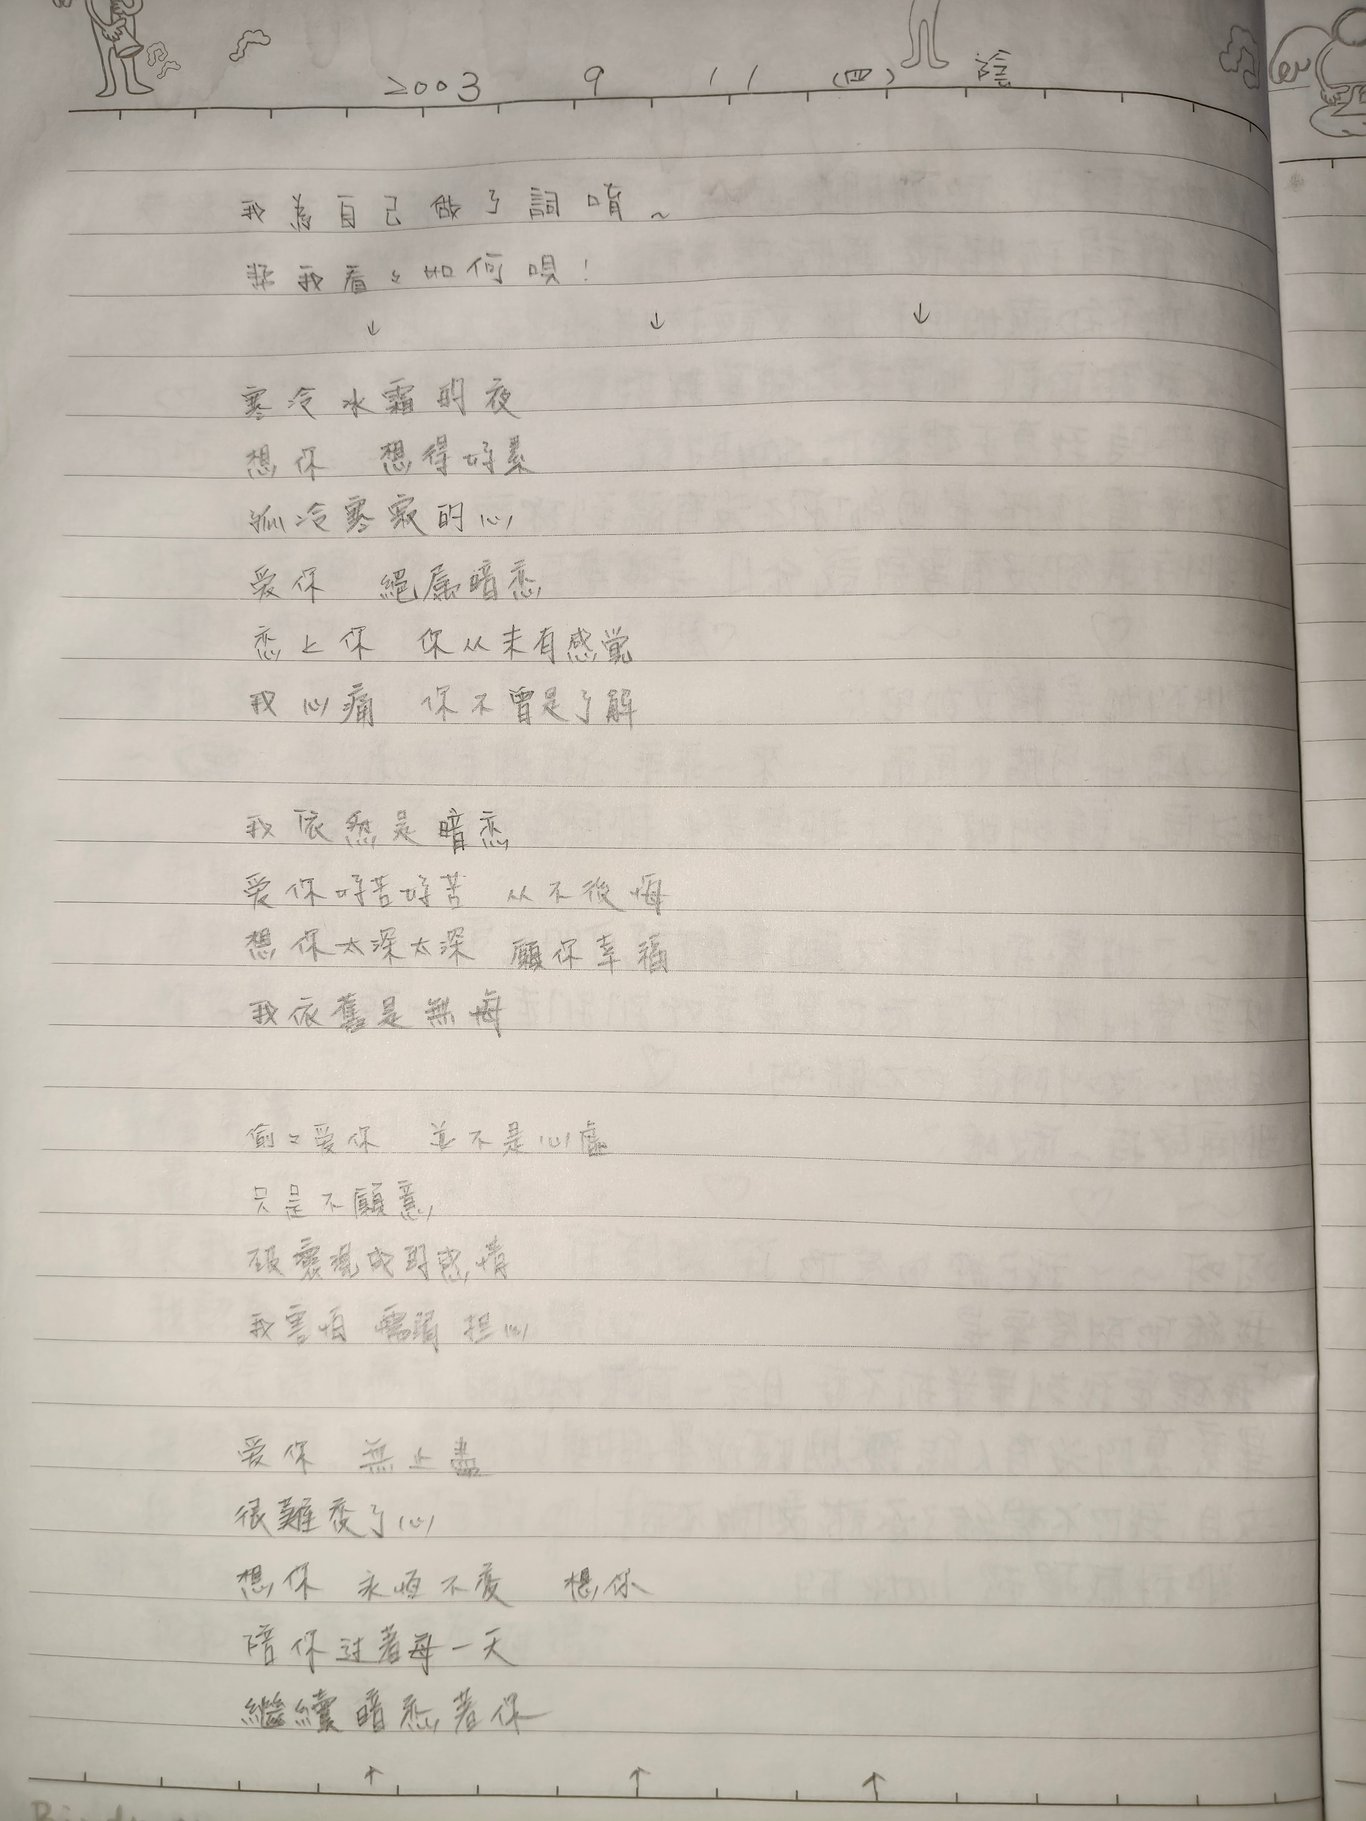 2003 9 11 (四) 陰
我為自己做了詞唷~
幫我看々如何唄!
↓ ↓ ↓
寒冷水霜的夜
想你 想得好累
孤冷寒寂的心
爱你 絕屬暗恋
恋上你 你从未有感覺
我心痛 你不曾是了解
我依然是暗恋
爱你好苦好苦 从不後悔
想你太深太深 願你幸福
我依舊是無悔
偷々爱你 並不是心虛
只是不願意
破壞現成的感情
我害怕 懦弱 担心
爱你 無止盡
很難变了心
想你 永恆不变 想你
陪你过着每一天
繼續暗恋著你
↑ ↑ ↑